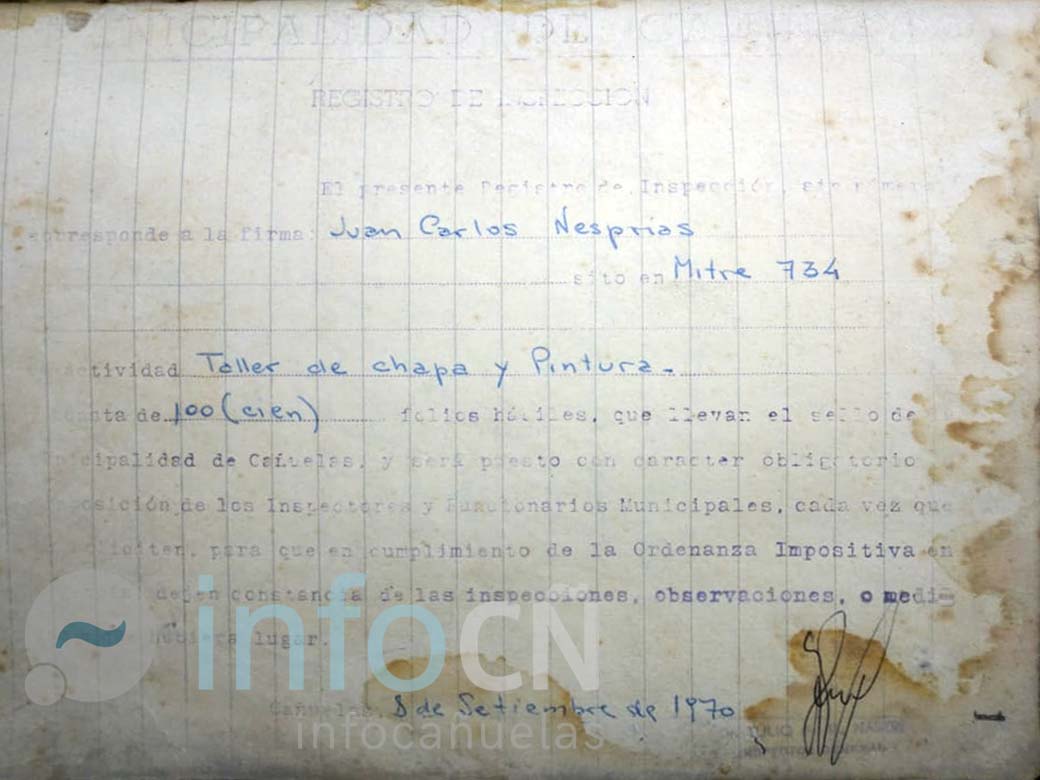 MUNICIPALIDAD DE
REGISTRO DE INSPECCION
El presente Registro de Inspección, sin número
corresponde a la firma: Juan Carlos Nesprias
sito en Mitre 734
actividad Taller de chapa y Pintura.
de 100 (cien) folios hútiles, que llevan el sello de
cipalidad de Cañuelas, y será puesto con caracter obligatorio
sición de los Inspectores y Funcionarios Municipales, cada vez que
liciten, para que en cumplimiento de la Ordenanza Impositiva en
dejen constancia de las inspecciones, observaciones, o medi-
hubiera lugar.
infoCÑ
Cañuelas, 8 de Setiembre de 1970
infocañuelas
JULIO
1